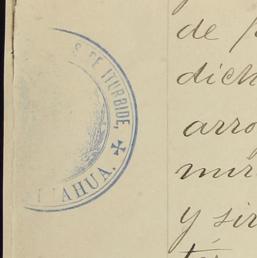 S. DE ITURBIDE,
HUAHUA.
de
dich
arro
mir
y sir